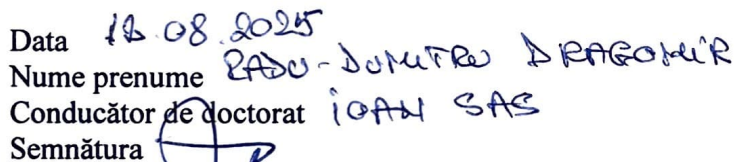 Data 18.08.2025
Nume prenume RADU-DUMITRU DRAGOMIR
Conducător de doctorat IOAN SAS
Semnătura